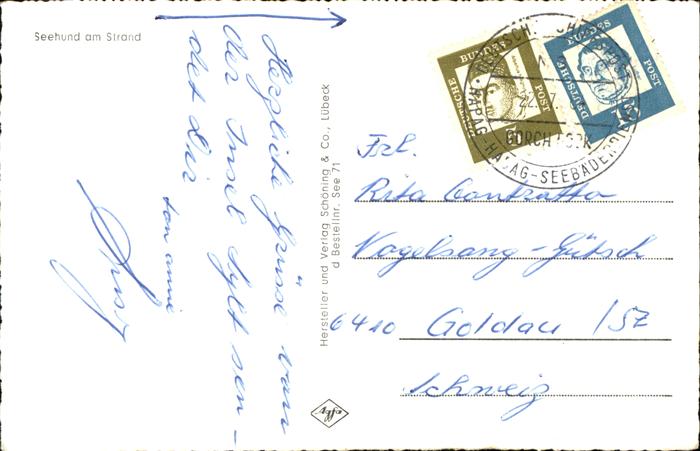 Seehund am Strand
Herzliche Grüsse von
der Insel Sylt sen-
det dir
Hersteller und Verlag Schöning & Co., Lübeck
d Bestellnr. See 71
Agfa
DEUTSCHE BUNDESPOST
DEUTSCHE BUNDESPOST
HAPAG-HAPAG-SEEBÄDERDIENST
GORCH FOCK
Frl.
Rita Contratto
Vogelsang-Gütsch
6410 Goldau / SZ
Schweiz